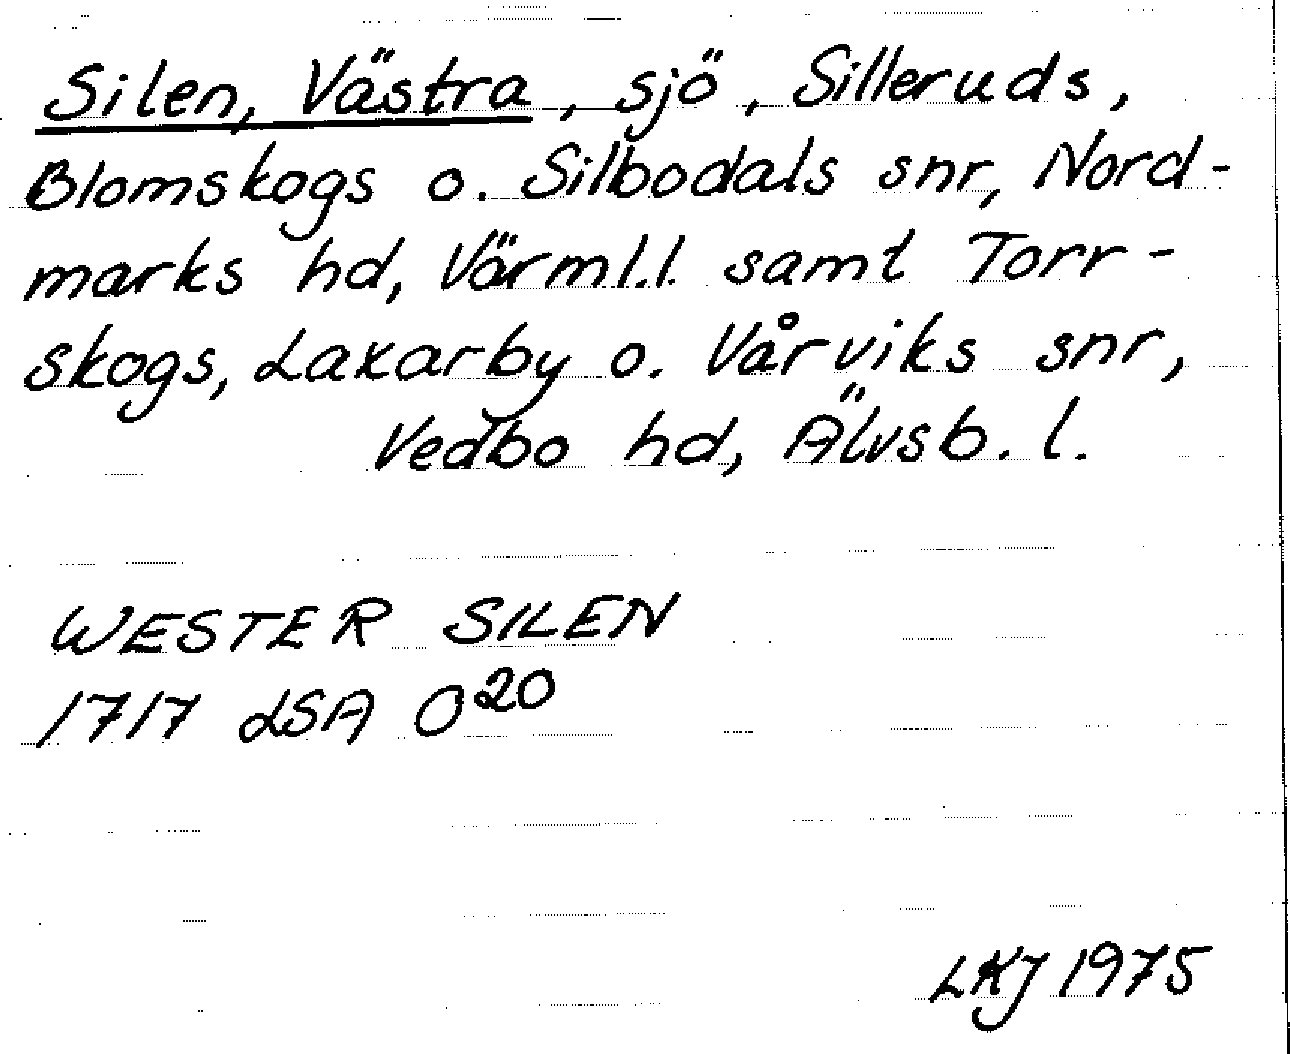 Silen, Västra, sjö, Silleruds,
Blomskogs o. Silbodals snr, Nord-
marks hd, Värml.l. samt Torr-
skogs, Laxarby o. Vårviks snr,
Vedbo hd, Älvsb. l.
WESTER SILEN
1717 LSA O²⁰
LKJ 1975